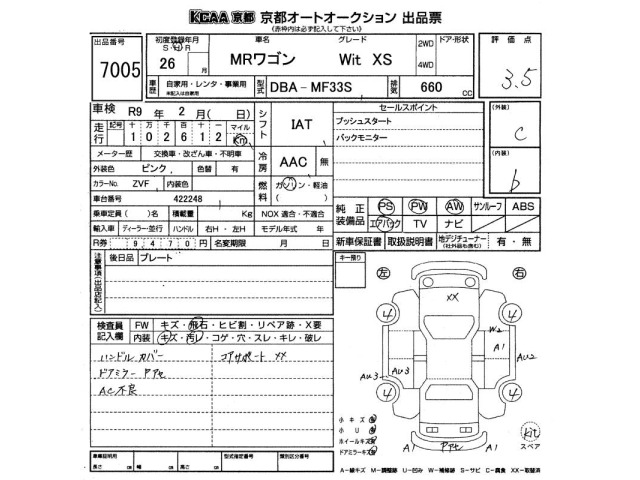 KCAA 京都 京都オートオークション 出品票
(赤枠内は必ず記入して下さい)
出品番号
7005
初度登録年月
S・H・R
26 月
車名
MRワゴン
グレード
Wit XS
2WD
4WD
ドア・形状
評価点
3.5
車歴
自家用・レンタ・事業用
未記入は自家用
型式
DBA - MF33S
排気
660 cc
車検 R9 年 2 月 ( 日)
走行
記号 十 万 千 百 十 一 マイル
1 0 2 6 1 2 Km
シフト
IAT
冷房
AAC 無
燃料
ガソリン・軽油
( )
セールスポイント
プッシュスタート
バックモニター
(外装)
C
(内装)
b
メーター歴 交換車・改ざん車・不明車
外装色 ピンク 色替 有
カラーNo. ZVF 内装色
車台番号 422248
乗車定員 ( )名 積載量 Kg NOX 適合・不適合
輸入車 ディーラー・並行 ハンドル 右H・左H モデル年式 年
R券 9470円 名変期限 月 日
純正装備品
PS PW AW サンルーフ ABS
エアバック TV ナビ
新車保証書 取扱説明書 地デジチューナー (社外品も含む) 有・無
注意事項(出品店記入)
後日品 プレート
キー預り
左
右
検査員記入欄
FW キズ・飛石・ヒビ割・リペア跡・X要
内装 キズ・汚レ・コゲ・穴・スレ・キレ・破レ
ハンドル カバー コアサポート XX
ドアミラー P アセ
AC不良
XX
4 4
W2
A1
AU2
AU3
AU3
4 4
小キズ
小U
ホイールキズ
ドアミラーキズ
A1 Pアセ A1
Kit
スペア
車車証明用
長さ cm 幅 cm 高さ cm
型式指定番号
類別区分番号
A―線キズ M―調整跡 U―凹み W―補修跡 S―サビ C―腐食 XX―取替済